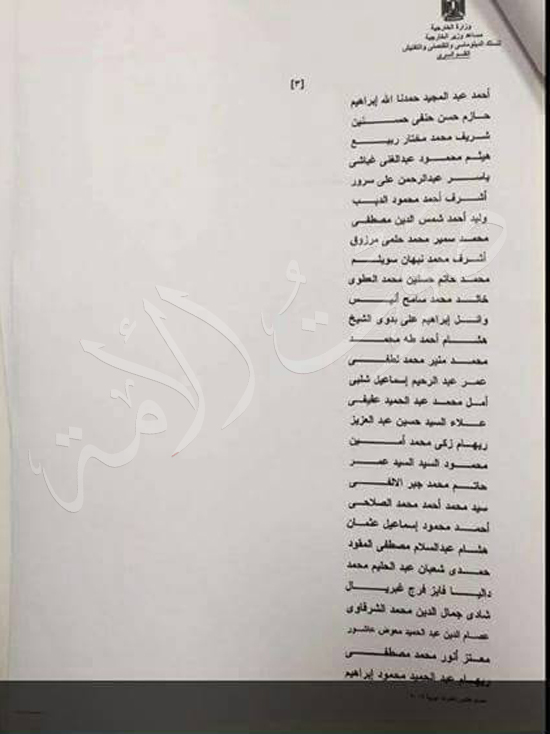 وزارة الخارجية
مساعد وزير الخارجية
للسلك الدبلوماسى والقنصلى والتفتيش
القسم السرى
[٣]
أحمد عبد المجيد حمدنا الله إبراهيم
حازم حسن حنفى حسنين
شريف محمد مختار ربيع
هيثم محمود عبدالغنى غباشى
ياسر عبدالرحمن على سرور
أشرف أحمد محمود الديب
وليد أحمد شمس الدين مصطفى
محمد سمير محمد حلمى مرزوق
أشرف محمد نبهان سويلم
محمد حاتم حسنين محمد العطوى
خالد محمد سامح أنيس
وائل إبراهيم على بدوى الشيخ
هشام أحمد طه محمد
محمد منير محمد لطفى
عمر عبد الرحيم إسماعيل شلبى
أمل محمد عبد الحميد عفيفى
علاء السيد حسين عبد العزيز
ريهام زكى محمد أمين
محمود السيد السيد عمر
حاتم محمد جبر الألفى
سيد محمد أحمد محمد الصلاحى
أحمد محمود إسماعيل عثمان
هشام عبدالسلام مصطفى المقود
حمدى شعبان عبد الحليم محمد
داليا فايز فرج غبريال
شادى جمال الدين محمد الشرقاوى
عصام الدين عبد الحميد معوض عاشور
معتز أنور محمد مصطفى
ريهام عبد الحميد محمود إبراهيم
صوت الأمة